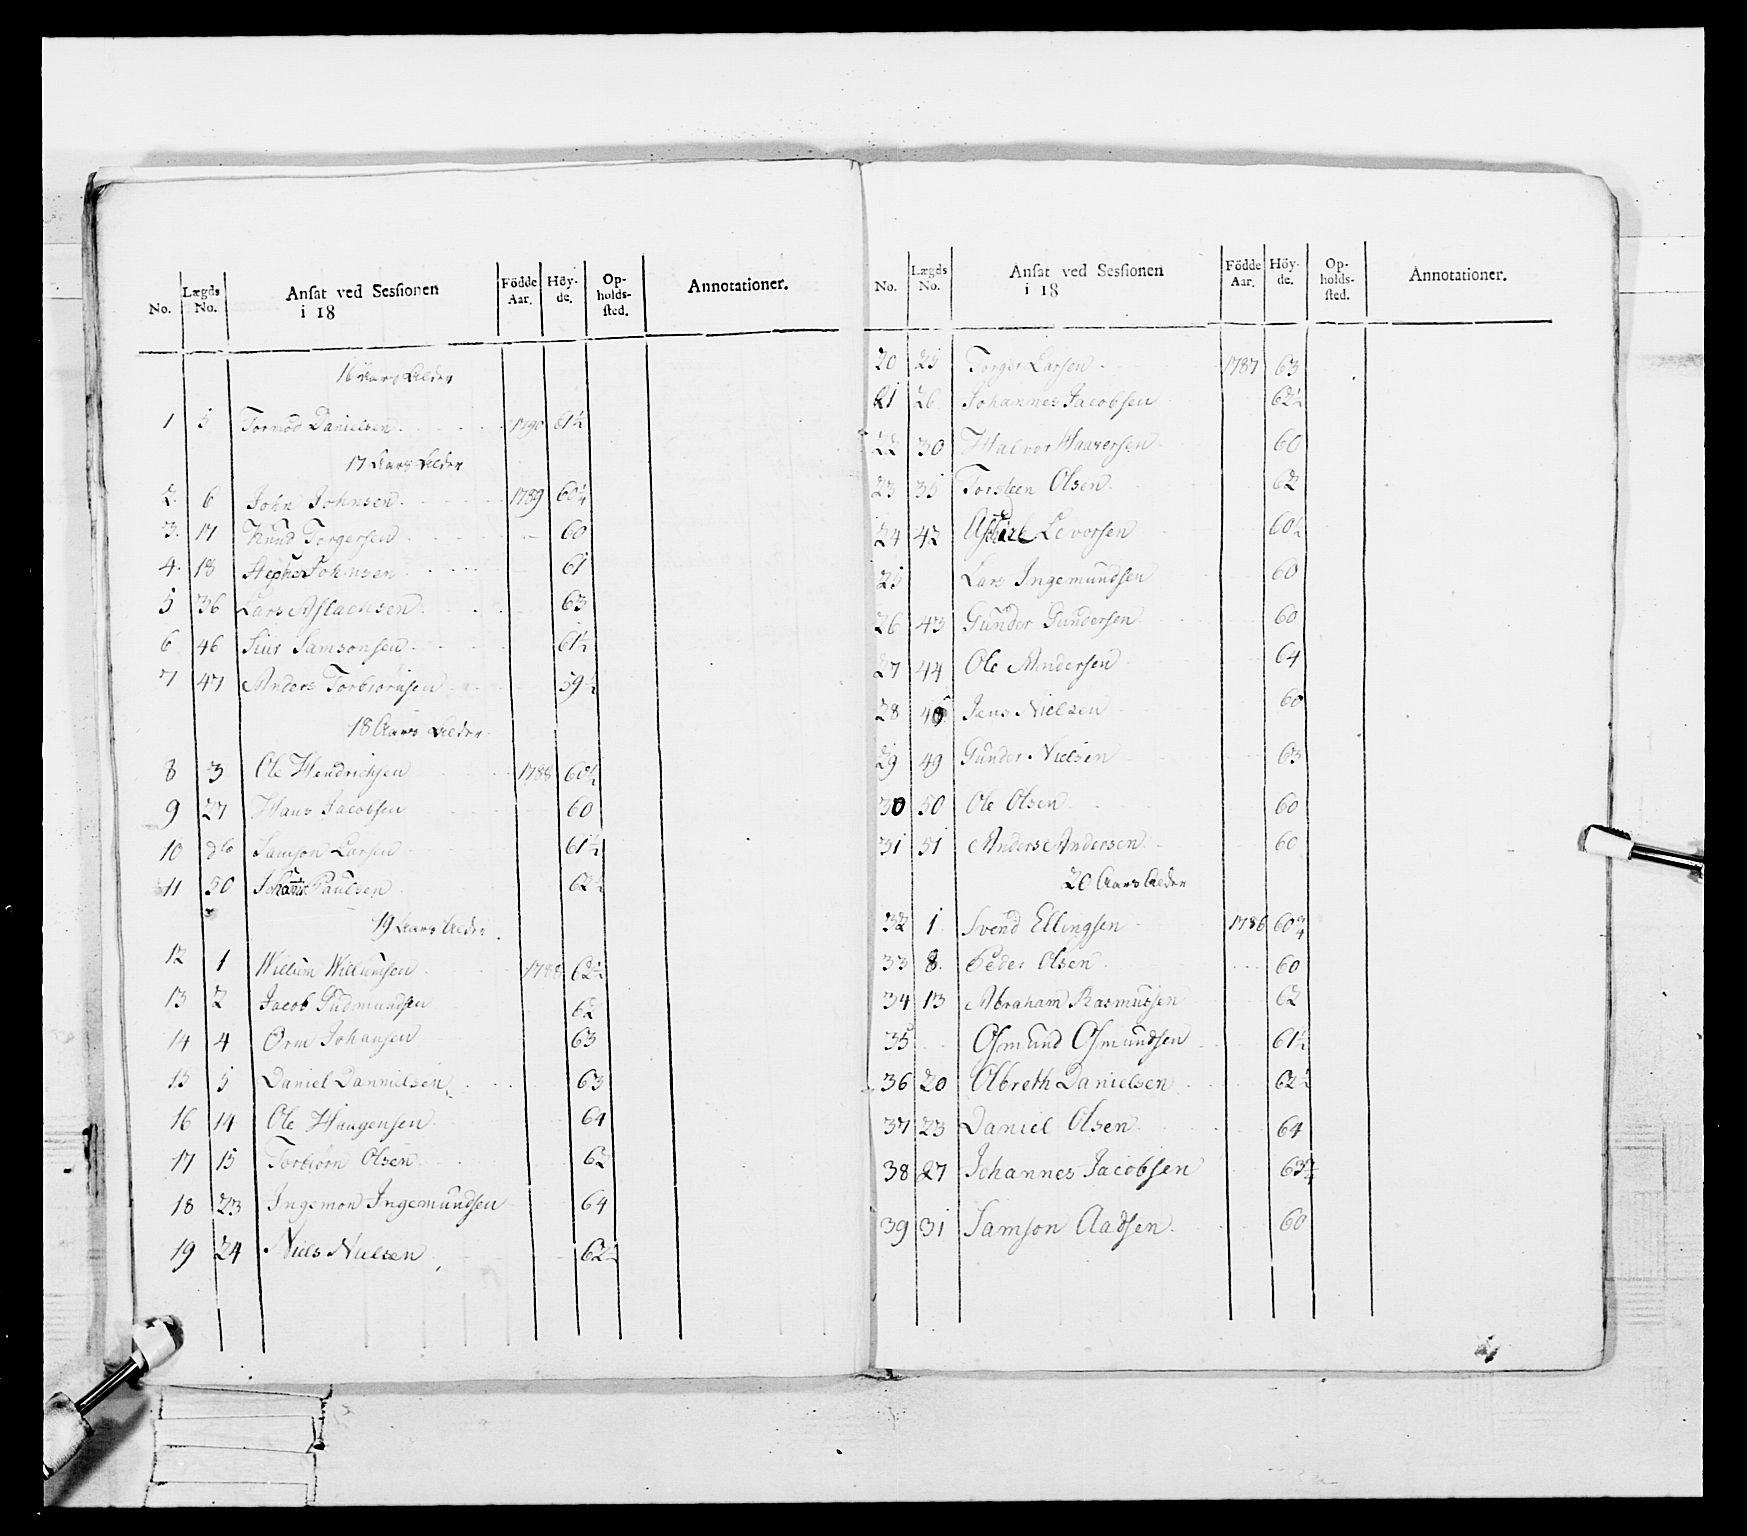 No. Lægds No. Ansat ved Sessionen i 18 Födde Aar. Höyde. Opholdssted. Annotationer.
16 Aars Alder
1 5 Tormod Danielsen 1790 61½
17 Aars Alder
2. 6 John Johnsen 1789 60¼
3. 17 Knud Torgersen 60
4. 18 Johnsen 61
5 36 Lars Aslacksen 63
6 46 Siur Samsonsen 61½
7 47 Anders Torbiørnsen 59½
18 Aars Alder
8 3 Ole Hendrichsen 1788 60½
9 27 Hans Jacobsen 60
10 dto Samson Larsen 61½
11 50 Johannes Paulsen 62½
19 Aars Alder
12 1 Willum Willumsen 62½
13 2 Jacob Gudmundsen 62
14 4 Orm Johansen 63
15 5 Daniel Dannielsen 63
16 14 Ole Haugensen 64
17 15 Torbiørn Olsen 62
18 23 Ingemon Ingemundsen 64
19 24 Niels Nielsen 62½
No. Lægds No. Ansat ved Sessionen i 18 Födde Aar. Höyde. Opholdssted. Annotationer.
20 25 Torger Larsen 1787 63
21 26 Johannes Jacobsen 62½
22 30 Halvor Haaversen 60
23 35 Torsteen Olsen 62
24 42 Levorsen 60½
25 Lars Ingemundsen 60
26 43 Gunder Gundersen 60
27 44 Ole Andersen 64
28 48 Jens Nielsen 60
29 49 Gunder Nielsen 63
30 50 Ole Olsen 60
31 51 Anders Andersen 60
20 Aars Alder
32 1 Svend Ellingsen 1786 60¾
33 8. Peder Olsen 60
34 13 Abraham Rasmussen 62
35 Osmund Osmundsen 61½
36 20 Olbreth Danielsen 62½
37 23 Daniel Olsen 64
38 27 Johannes Jacobsen 63¾
39 31 Samson Aadsen 60